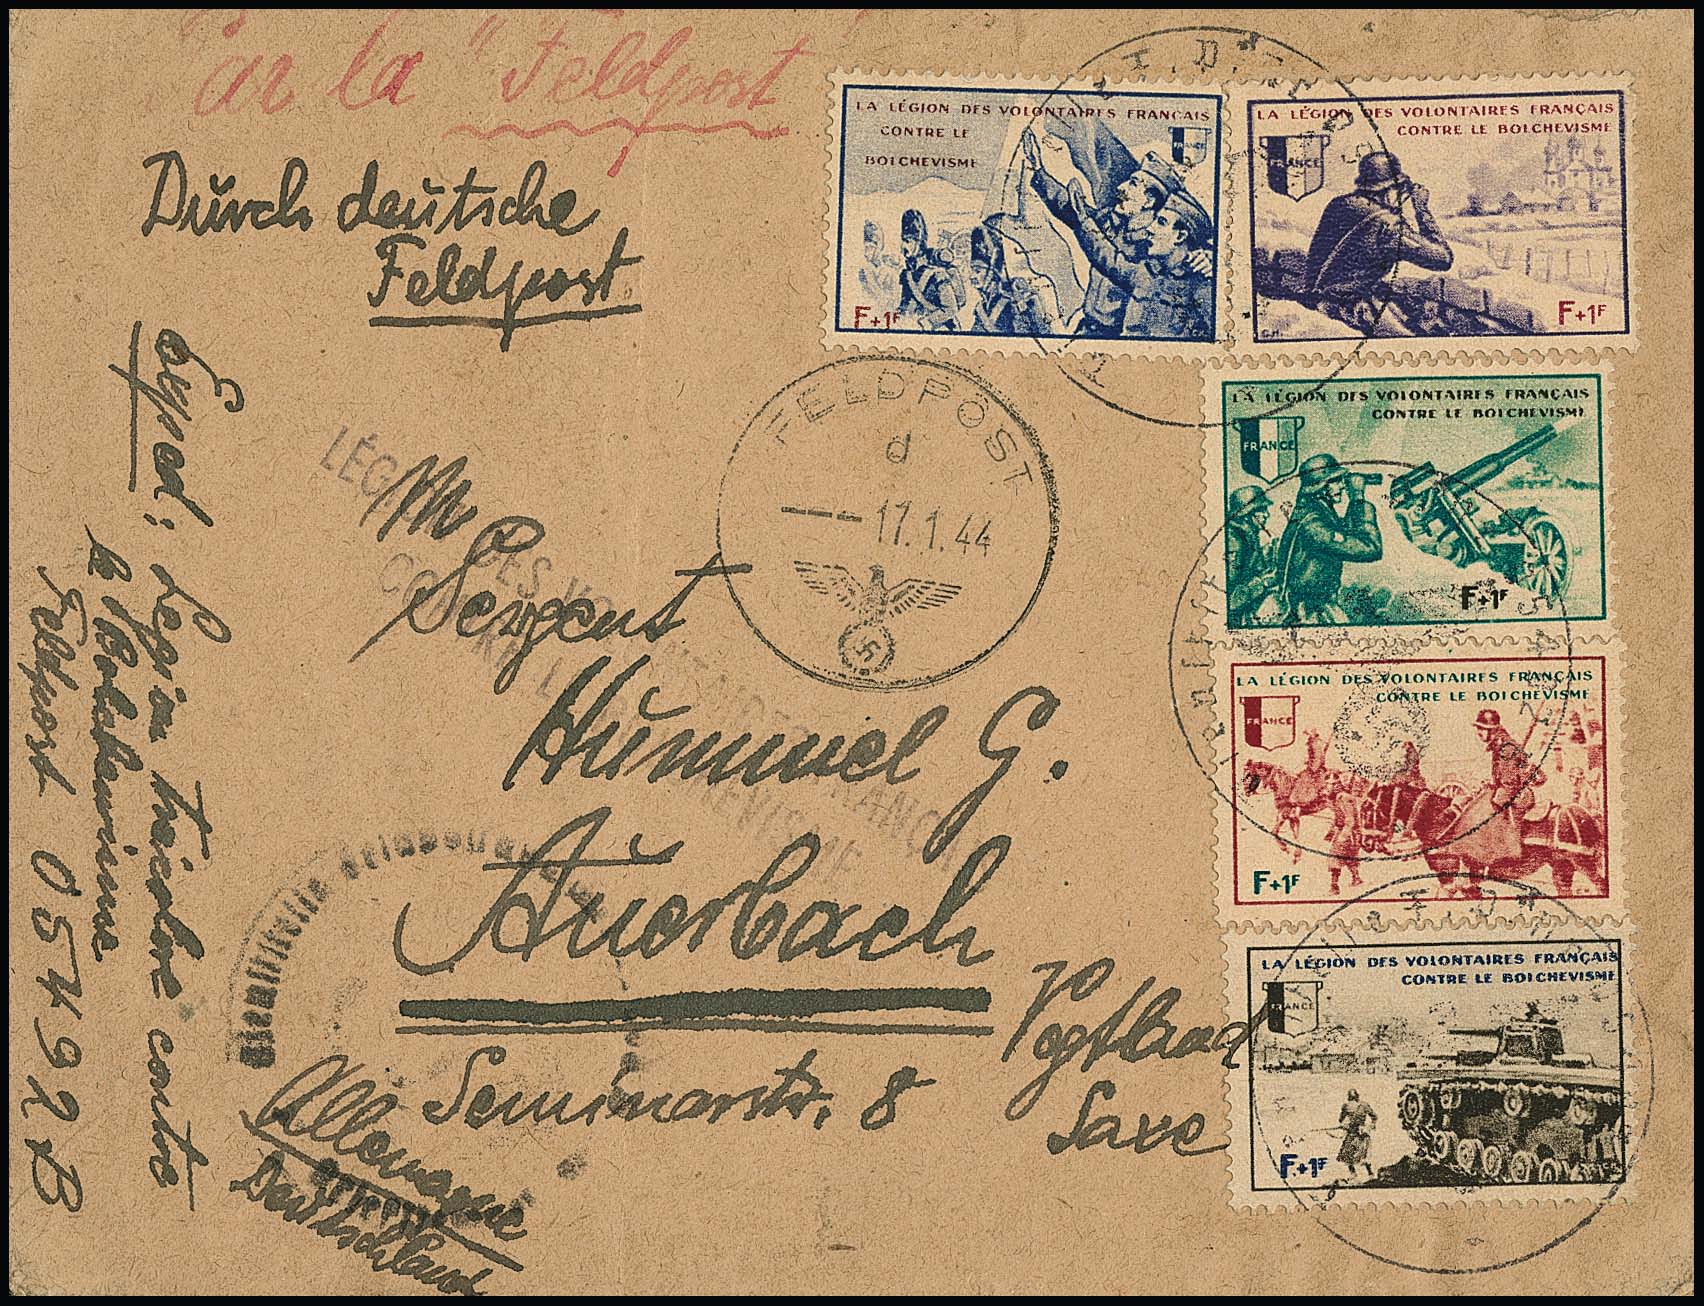 Par la "Feldpost"
Durch deutsche
Feldpost
Sergent
Hummel G.
Auerbach
Vogtland
Seminarstr. 8
Saxe
Allemagne
Deutschland
Exped: Legion tricolore contre
le Bolchevisme
Feldpost 05492 B
FELDPOST
d
--- 17.1.44
LÉGION DES VOLONTAIRES FRANÇAIS
CONTRE LE BOLCHEVISME
LA LÉGION DES VOLONTAIRES FRANÇAIS
CONTRE LE
BOLCHEVISME
F+1F
LA LÉGION DES VOLONTAIRES FRANÇAIS
CONTRE LE BOLCHEVISME
FRANCE
F+1F
LA LÉGION DES VOLONTAIRES FRANÇAIS
CONTRE LE BOLCHEVISME
FRANCE
F+1F
LA LÉGION DES VOLONTAIRES FRANÇAIS
CONTRE LE BOLCHEVISME
FRANCE
F+1F
LA LÉGION DES VOLONTAIRES FRANÇAIS
CONTRE LE BOLCHEVISME
FRANCE
F+1F